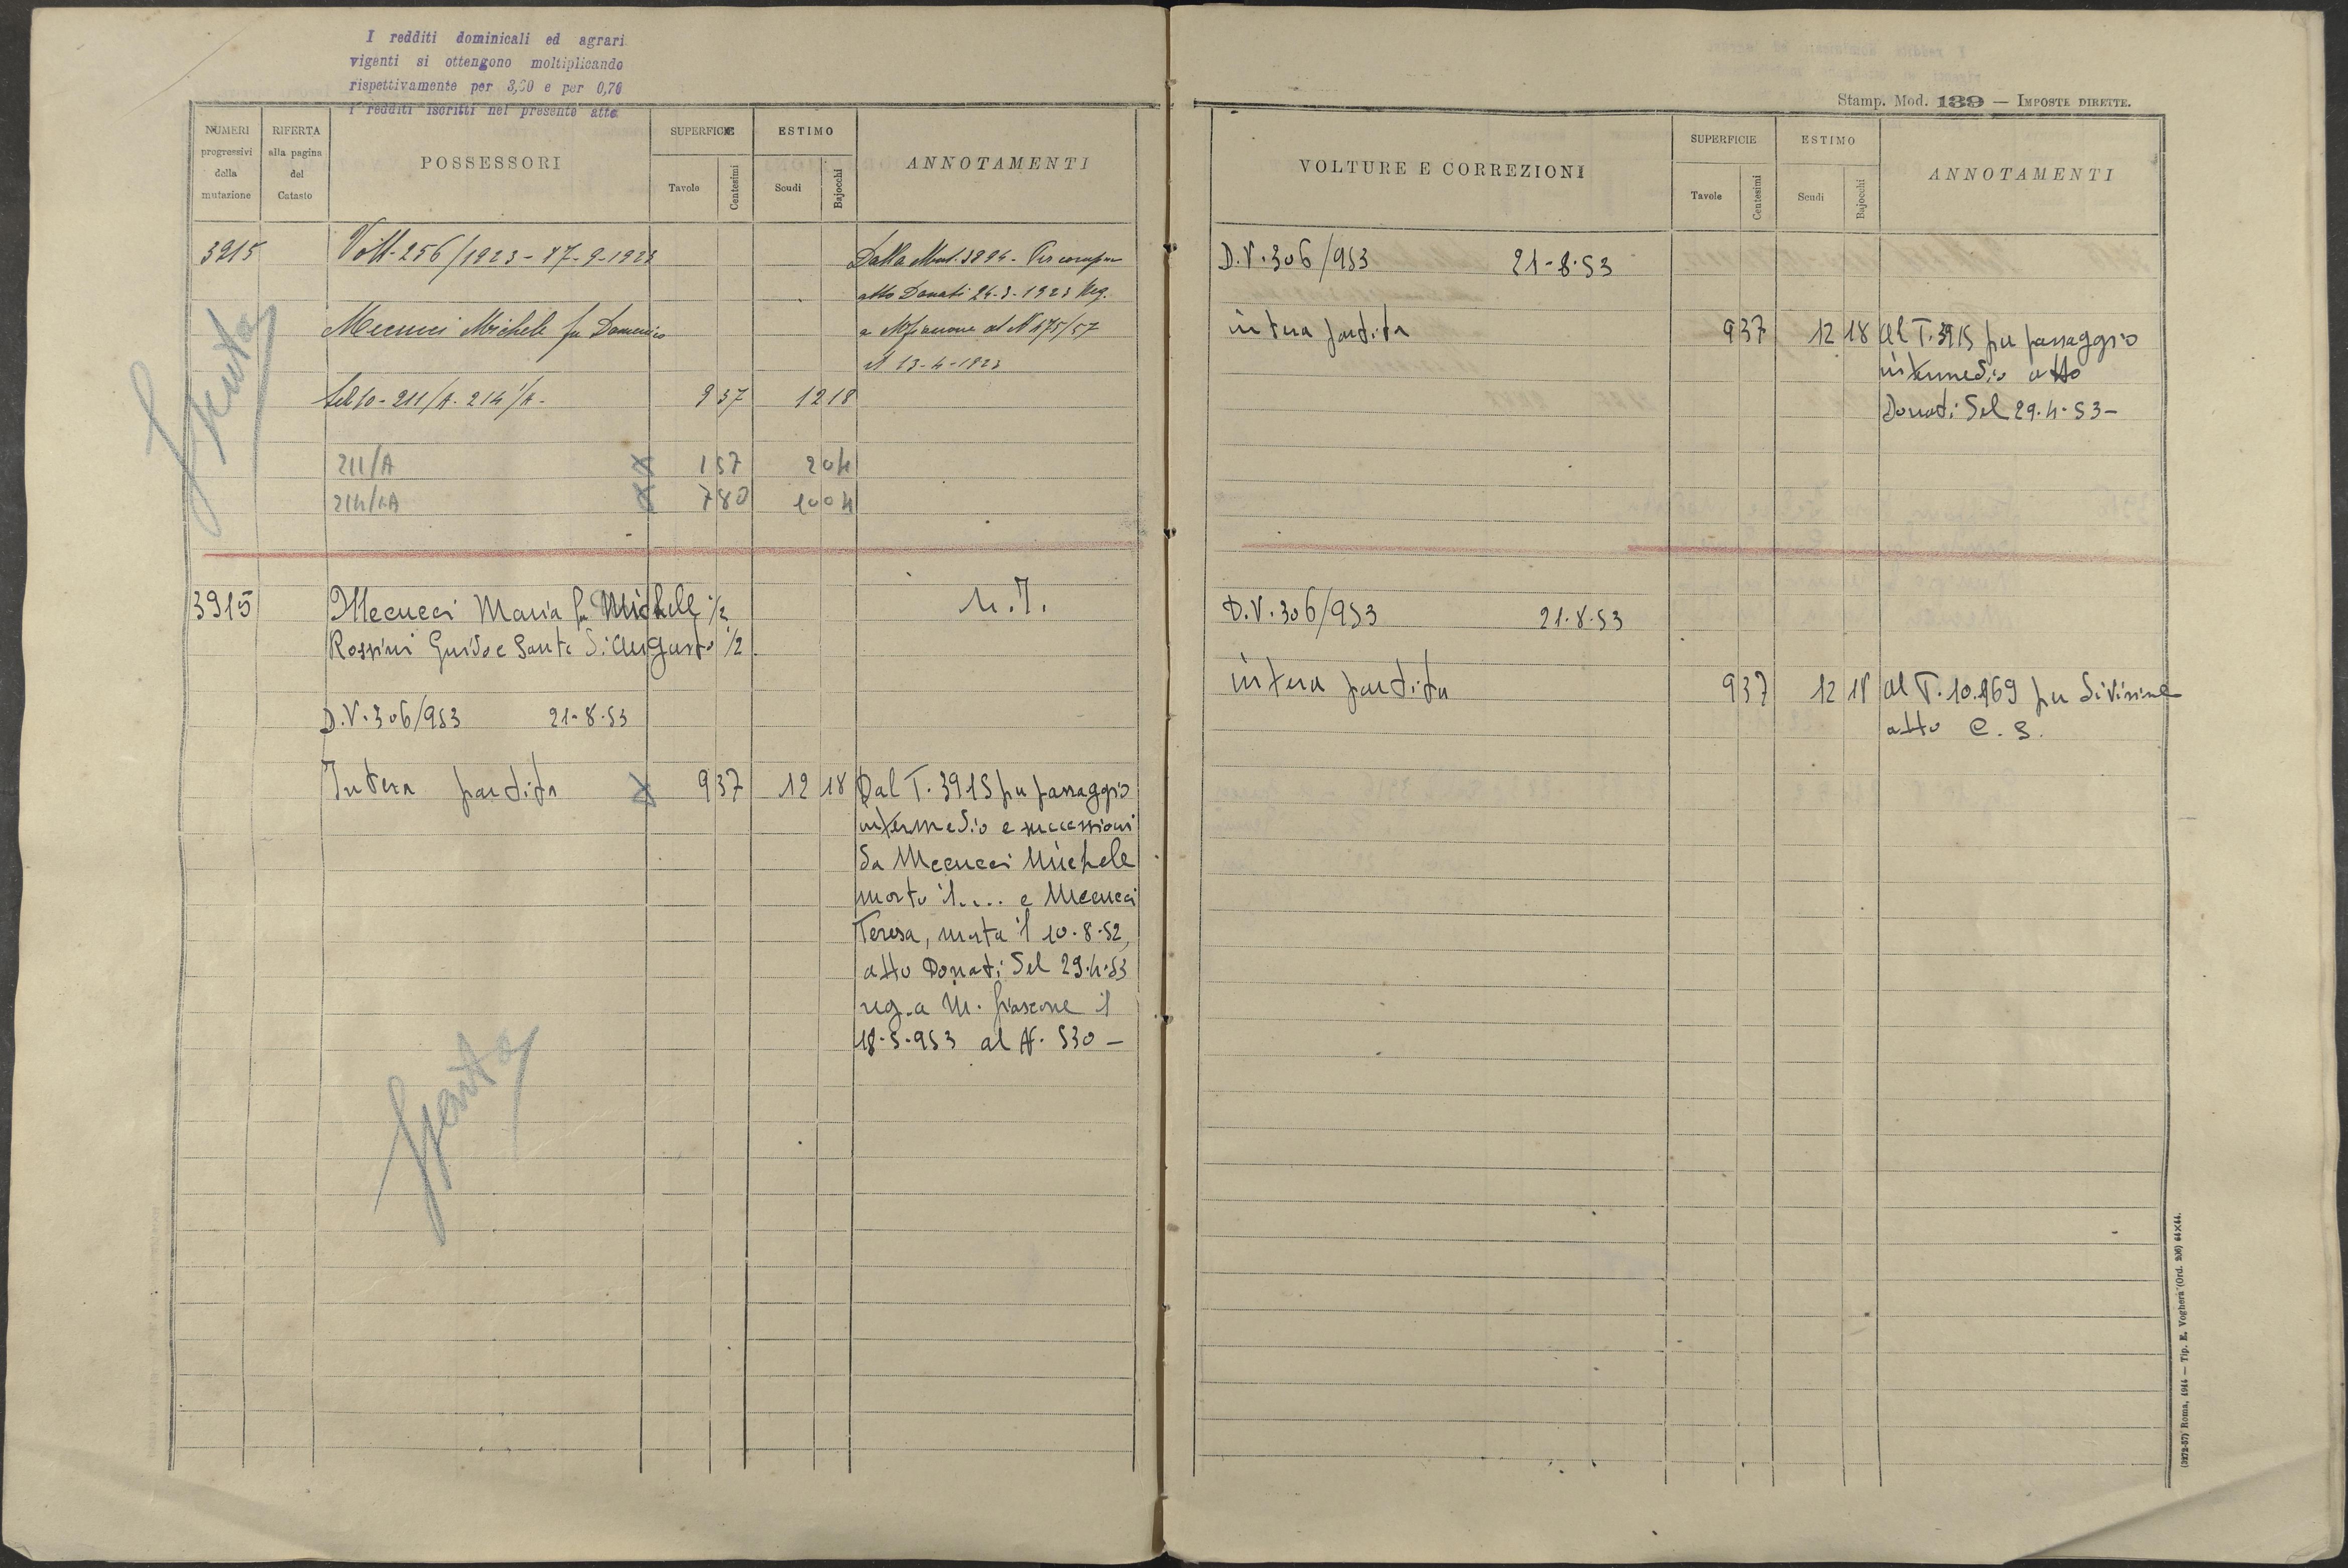 I redditi dominicali ed agrari
vigenti si ottengono moltiplicando
rispettivamente per 3,60 e per 0,70
i redditi iscritti nel presente atto
NUMERI progressivi della mutazione
RIFERTA alla pagina del Catasto
POSSESSORI
SUPERFICIE
Tavole
Centesimi
ESTIMO
Scudi
Bajocchi
ANNOTAMENTI
3915
Volt. 256/1923 - 17-9-1923
Dalla Mut. 3894 - Per
atto Donati 24-3-1923 Reg.
Mecucci Michele fu Domenico
a al N 475/57
il 13-4-1923
Sez 10 - 211/A - 214/A - 9 37 12 18
211/A 1 57 2 04
214/1A 7 80 10 04
Spenta
3915
Mecucci Maria fu Michele 1/2
n. T.
Rossini Guido e Santa di Augusto 1/2
D.V. 306/953 21-8-53
Intera partita 9 37 12 18 Dal T. 3915 per passaggio
intermedio e successioni
da Mecucci Michele
morto il .... e Mecucci
Teresa, morta il 10-8-52,
atto Donati del 29-4-53
reg. a M. fiascone il
18-5-953 al N. 530 -
Spenta
Stamp. Mod. 139 — IMPOSTE DIRETTE.
VOLTURE E CORREZIONI
SUPERFICIE
Tavole
Centesimi
ESTIMO
Scudi
Bajocchi
ANNOTAMENTI
D.V. 306/953 21-8-53
intera partita 9 37 12 18 Al T. 3915 per passaggio
intermedio atto
Donati del 29-4-53 -
D.V. 306/953 21-8-53
intera partita 9 37 12 18 al T. 10.169 per divisione
atto C. S.
(3272-57) Roma, 1944 — Tip. E. Voghera (Ord. 206) 64×44.